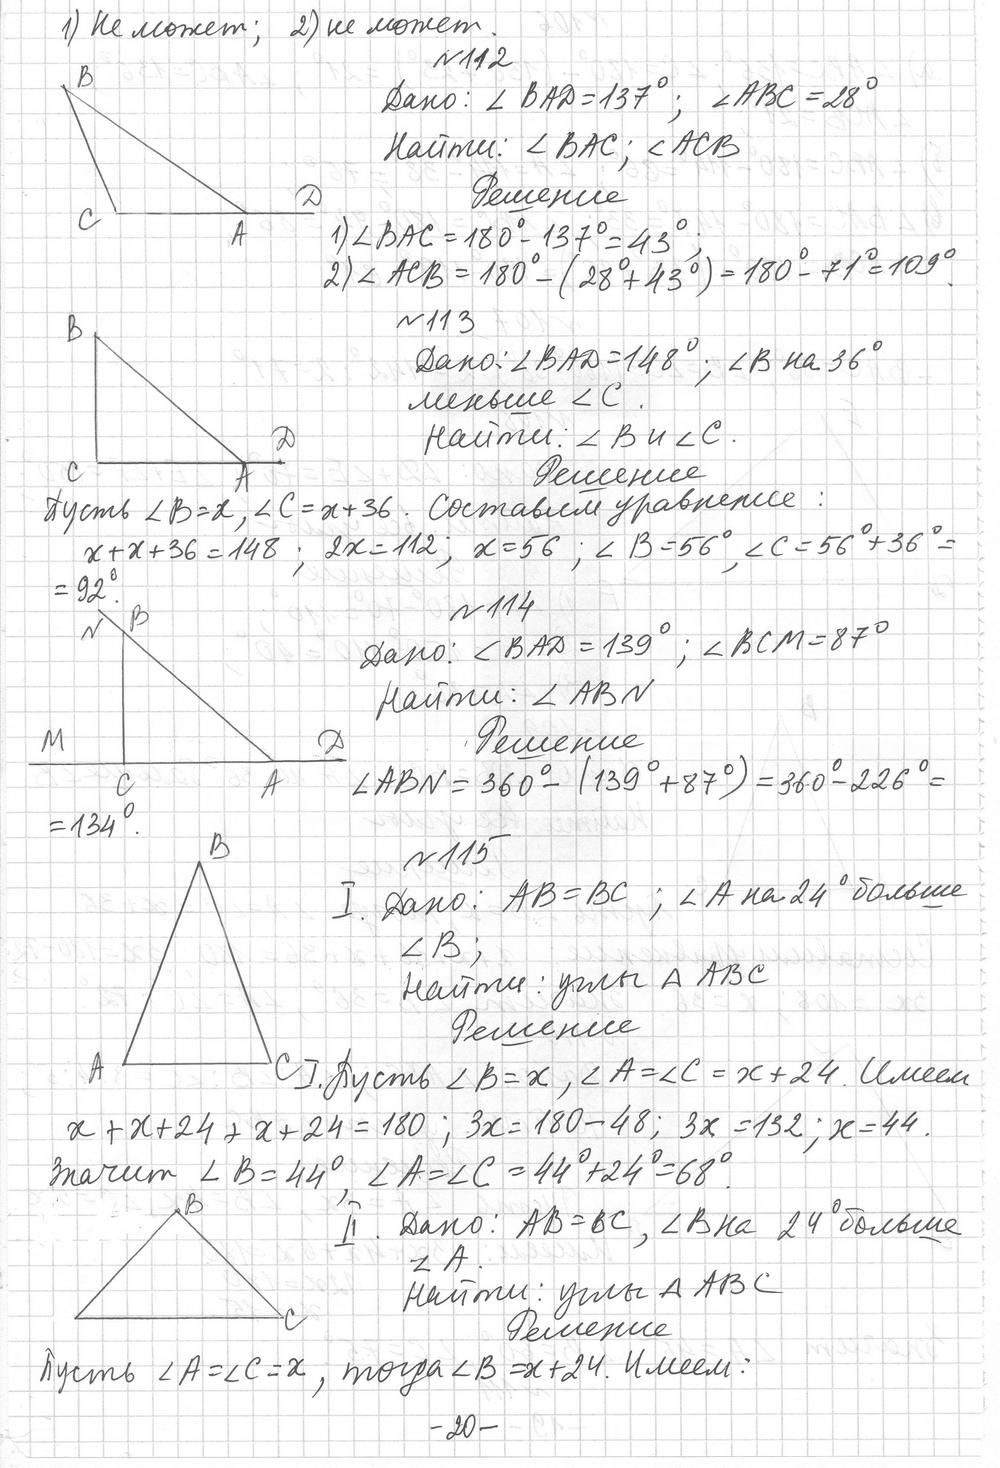 1) Не может; 2) не может.
№112
B
Дано: ∠BAD=137°; ∠ABC=28°
Найти: ∠BAC; ∠ACB
Решение
C
A
D
1) ∠BAC=180°-137°=43°;
2) ∠ACB=180°-(28°+43°)=180°-71°=109°.
№113
B
Дано: ∠BAD=148°; ∠B на 36°
меньше ∠C.
Найти: ∠B и ∠C.
C
A
D
Решение
Пусть ∠B=x, ∠C=x+36. Составим уравнение:
x+x+36=148; 2x=112; x=56; ∠B=56°, ∠C=56°+36°=
=92°.
№114
N
B
Дано: ∠BAD=139°; ∠BCM=87°
Найти: ∠ABN
Решение
M
C
A
D
∠ABN=360°-(139°+87°)=360°-226°=
=134°.
№115
B
I. Дано: AB=BC; ∠A на 24° больше
∠B;
Найти: углы △ABC
Решение
A
C
I. Пусть ∠B=x, ∠A=∠C=x+24. Имеем
x+x+24+x+24=180; 3x=180-48; 3x=132; x=44.
Значит ∠B=44°, ∠A=∠C=44°+24°=68°.
B
II. Дано: AB=BC, ∠B на 24° больше
∠A.
Найти: углы △ABC
C
Решение
Пусть ∠A=∠C=x, тогда ∠B=x+24. Имеем:
-20-